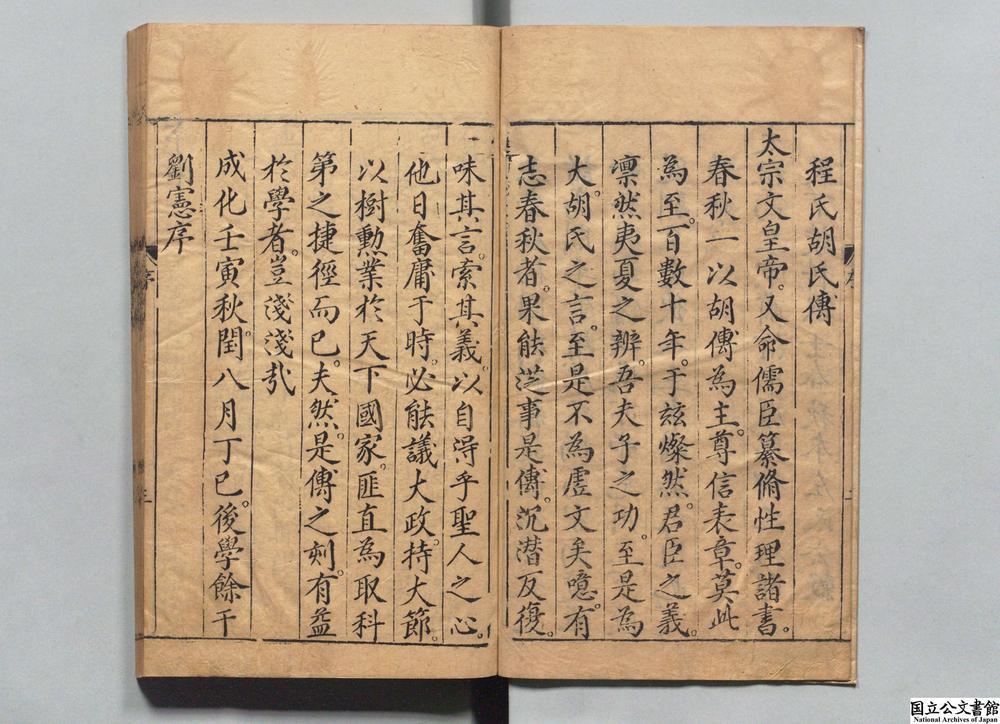 程氏胡氏傳
太宗文皇帝。又命儒臣纂脩性理諸書。
春秋一以胡傳為主。尊信表章。莫此
為至。百數十年。于兹燦然。君臣之義。
凛然夷夏之辨。吾夫子之功。至是為
大。胡氏之言。至是不為虛文矣。噫。有
志春秋者。果能従事是傳。沉潜反復。
味其言。索其義。以自得乎聖人之心。
他日奮庸于時。必能議大政。持大節。
以樹勲業於天下國家。匪直為取科
第之捷徑而已。夫然。是傳之刻。有益
於學者。豈淺淺㢤
成化壬寅秋。閏八月丁巳。後學餘干
劉憲序
序
三
序
國立公文書館
National Archives of Japan